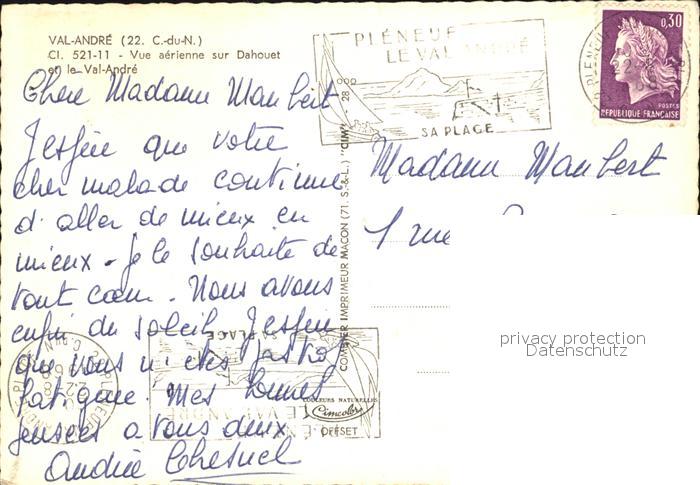 VAL-ANDRÉ (22. C.-du-N.)
Cl. 521-11 - Vue aérienne sur Dahouet
et le Val-André
Chère Madame Maubert
J'espère que votre
cher malade continue
d'aller de mieux en
mieux - je le souhaite de
tout cœur. Nous avons
enfin du soleil J'espère
que vous n'êtes pas trop
fatiguée. Mes bonnes
pensées à vous deux
Andrée Chesnel
COULEURS NATURELLES
Cimcolor
OFFSET
COMBIER IMPRIMEUR MACON (71. S.-&-L.) "CIM"
PLÉNEUF
LE VAL ANDRÉ
SA PLAGE
0,30
POSTES
REPUBLIQUE FRANÇAISE
Madame Maubert
1 rue
privacy protection
Datenschutz